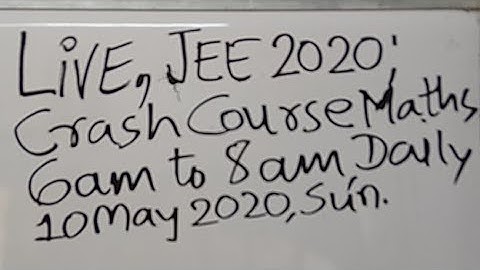 LiVE, JEE 2020;
Crash Course Maths
6am to 8am, Daily
10 May 2020, Sun.